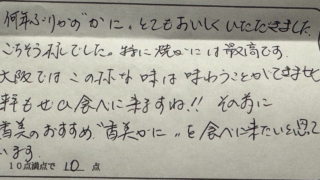 何年ぶりかの"かに。とてもおいしくいただきました。
ごちそう様でした。特に焼がには最高です。
大阪ではこの様な味は味わうことができません
またぜひ食べに来ますね!! その前に
香美のおすすめ"香美がに"を食べに来たいと思って
います。
10点満点で 10 点